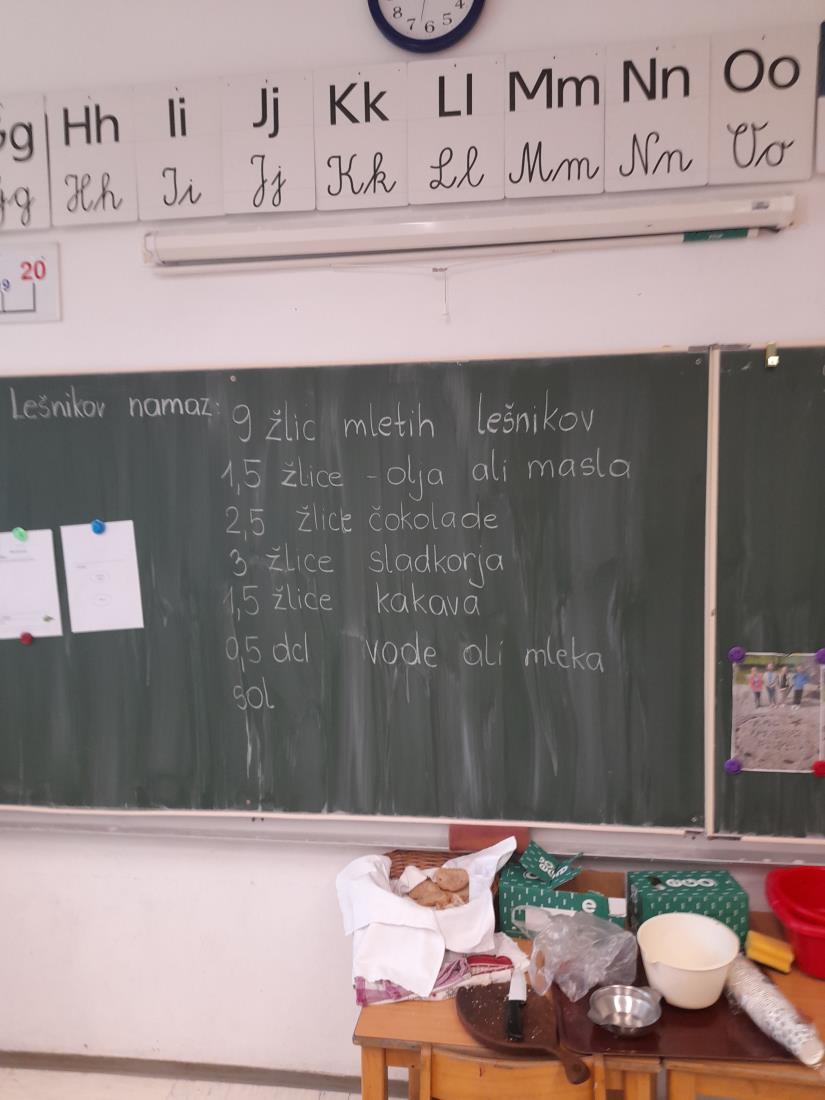 8 7 6 5 4
Gg Hh Ii Jj Kk Ll Mm Nn Oo
Gg Hh Ii Jj Kk Ll Mm Nn Oo
9 20
Lešnikov namaz: 9 žlic mletih lešnikov
1,5 žlice - olja ali masla
2,5 žlice čokolade
3 žlice sladkorja
1,5 žlice kakava
0,5 dcl vode ali mleka
sol